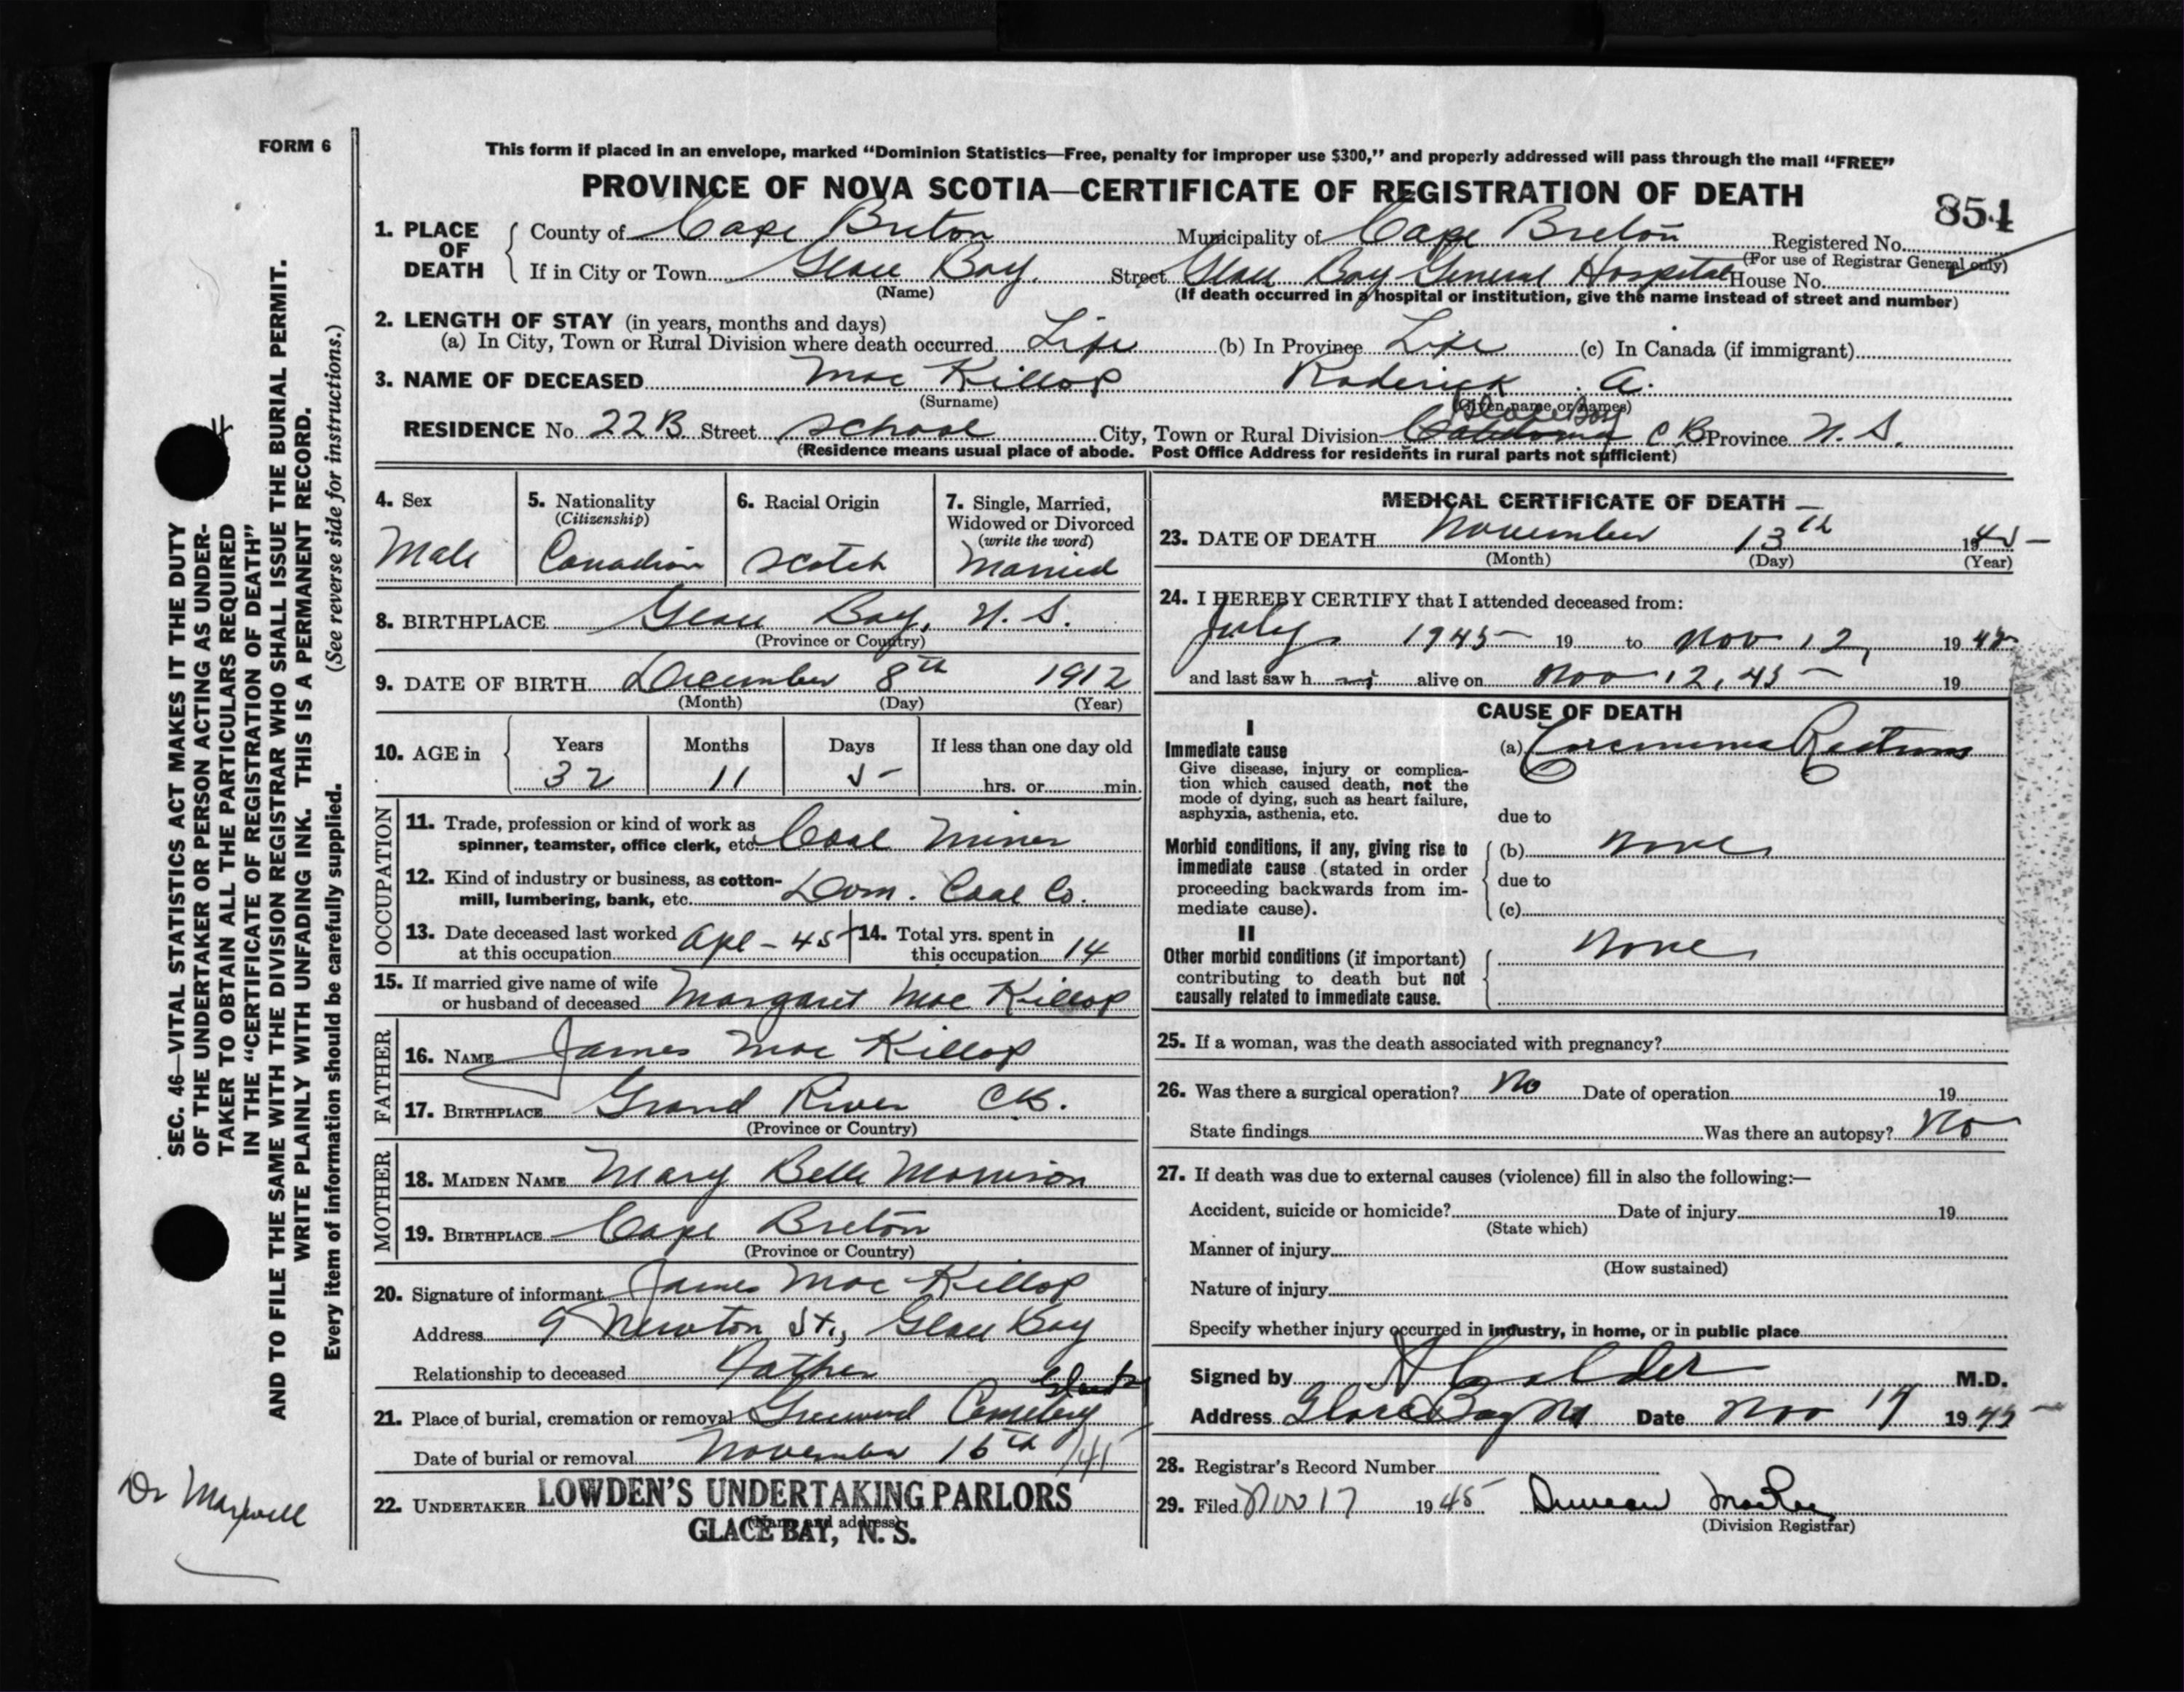 FORM 6
This form if placed in an envelope, marked “Dominion Statistics—Free, penalty for improper use $300,” and properly addressed will pass through the mail “FREE”
PROVINCE OF NOVA SCOTIA—CERTIFICATE OF REGISTRATION OF DEATH
854
1. PLACE OF DEATH County of Cape Breton Municipality of Cape Breton Registered No.
(For use of Registrar General only)
If in City or Town Glace Bay. Street Glace Bay General Hospital House No.
(Name) (If death occurred in a hospital or institution, give the name instead of street and number)
2. LENGTH OF STAY (in years, months and days)
(a) In City, Town or Rural Division where death occurred Life (b) In Province Life (c) In Canada (if immigrant)
3. NAME OF DECEASED Mac Killop Roderick A.
(Surname) (Given name or names)
Glace Bay
RESIDENCE No. 22B Street School City, Town or Rural Division Caledonia C.B. Province N.S.
(Residence means usual place of abode. Post Office Address for residents in rural parts not sufficient)
4. Sex
Male
5. Nationality
(Citizenship)
Canadian
6. Racial Origin
Scotch
7. Single, Married,
Widowed or Divorced
(write the word)
Married
8. BIRTHPLACE Glace Bay, N.S.
(Province or Country)
9. DATE OF BIRTH December 8th 1912
(Month) (Day) (Year)
10. AGE in Years Months Days If less than one day old
32 11 5 hrs. or min.
OCCUPATION
11. Trade, profession or kind of work as
spinner, teamster, office clerk, etc. Coal Miner
12. Kind of industry or business, as cotton-
mill, lumbering, bank, etc. Dom. Coal Co.
13. Date deceased last worked
at this occupation Apl - 45
14. Total yrs. spent in
this occupation 14
15. If married give name of wife
or husband of deceased Margaret Mac Killop
FATHER
16. NAME James Mac Killop
17. BIRTHPLACE Grand River C.B.
(Province or Country)
MOTHER
18. MAIDEN NAME Mary Belle Morrison
19. BIRTHPLACE Cape Breton
(Province or Country)
20. Signature of informant James Mac Killop
Address 9 Newton St., Glace Bay
Relationship to deceased Father
21. Place of burial, cremation or removal Greenwood Cemetery
Date of burial or removal November 16th /45
22. UNDERTAKER LOWDEN'S UNDERTAKING PARLORS
(Name and address)
GLACE BAY, N. S.
MEDICAL CERTIFICATE OF DEATH
23. DATE OF DEATH November 13th 1945
(Month) (Day) (Year)
24. I HEREBY CERTIFY that I attended deceased from:
July 1945 19 to Nov 12, 1945
and last saw h im alive on Nov 12, 45 19
CAUSE OF DEATH
I
Immediate cause (a) Carcinoma Rectum
Give disease, injury or complica-
tion which caused death, not the
mode of dying, such as heart failure,
asphyxia, asthenia, etc.
due to
Morbid conditions, if any, giving rise to
immediate cause (stated in order
proceeding backwards from im-
mediate cause).
(b) None
due to
(c)
II
Other morbid conditions (if important)
contributing to death but not
causally related to immediate cause.
None
25. If a woman, was the death associated with pregnancy?
26. Was there a surgical operation? No Date of operation 19
State findings Was there an autopsy? No
27. If death was due to external causes (violence) fill in also the following:—
Accident, suicide or homicide? Date of injury 19
(State which)
Manner of injury
(How sustained)
Nature of injury
Specify whether injury occurred in industry, in home, or in public place
Signed by A Calder M.D.
Address Glace Bay NS Date Nov 14 1945
28. Registrar's Record Number
29. Filed Nov 17 1945 Duncan MacRae
(Division Registrar)
SEC. 46—VITAL STATISTICS ACT MAKES IT THE DUTY
OF THE UNDERTAKER OR PERSON ACTING AS UNDER-
TAKER TO OBTAIN ALL THE PARTICULARS REQUIRED
IN THE “CERTIFICATE OF REGISTRATION OF DEATH”
AND TO FILE THE SAME WITH THE DIVISION REGISTRAR WHO SHALL ISSUE THE BURIAL PERMIT.
WRITE PLAINLY WITH UNFADING INK. THIS IS A PERMANENT RECORD.
Every item of information should be carefully supplied. (See reverse side for instructions.)
Dr Maxwell